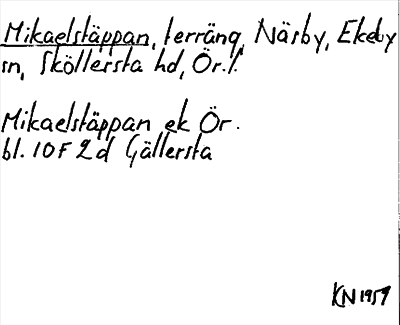 Mikaelstäppan, terräng, Näsby, Ekeby
sn, Sköllersta hd, Ör.l.
Mikaelstäppan ek Ör.
bl. 10F 2d Gällersta
KN 1959